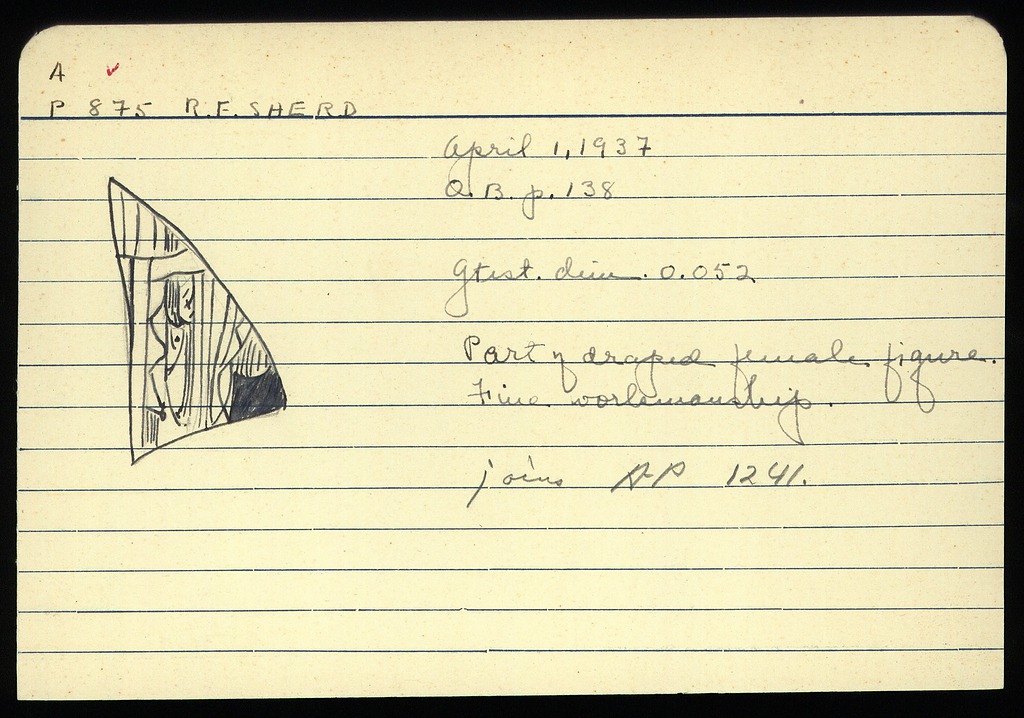 A
P 875 R.F. SHERD
April 1, 1937
O.B. p. 138
Gtest. dim. 0.052
Part of draped female figure.
Fine workmanship.
joins AP 1241.